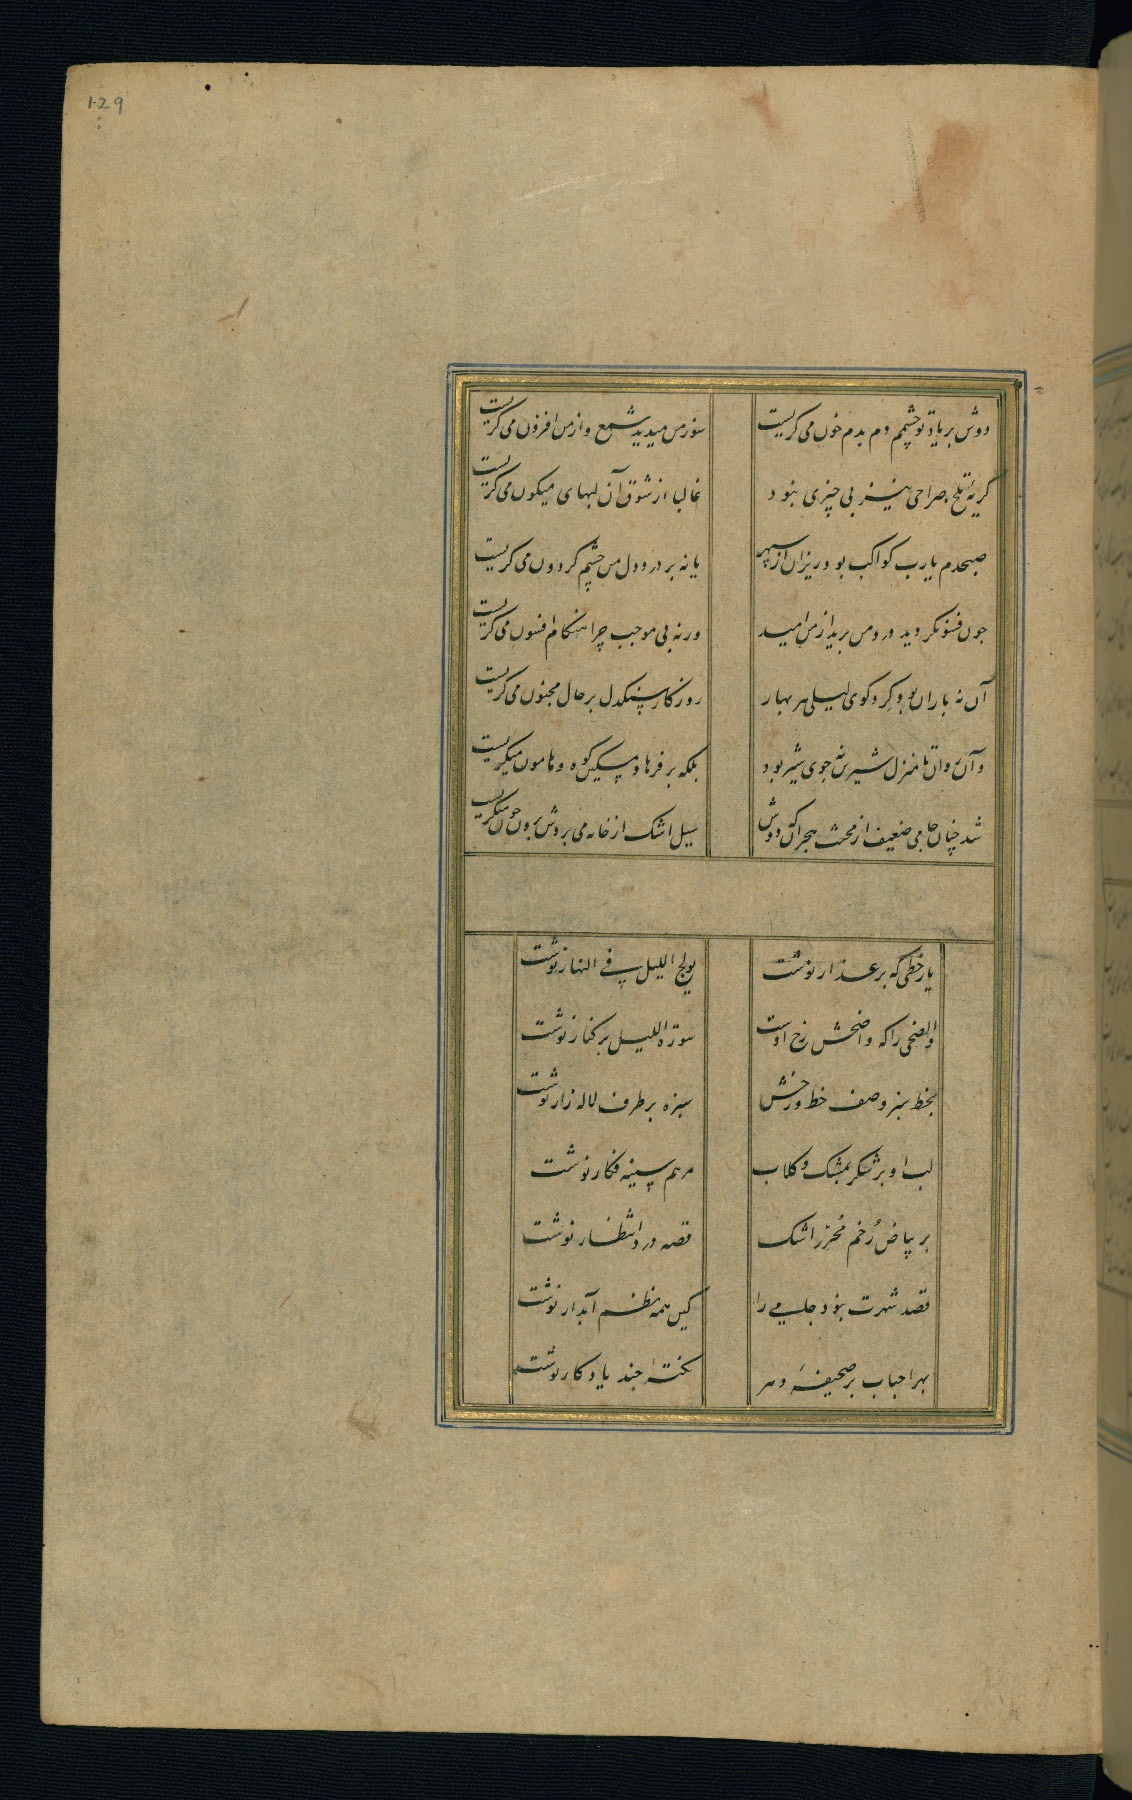 129
دوش بر یاد تو چشمم دم بدم خون می گریست
سوز من میدید شمع و از من افزون می گریست
گریهٔ تلخ صراحی نیز بی چیزی نبود
غالبا از شوق آن لبهای میگون می گریست
صبحدم یارب کواکب بود ریزان از سپهر
یا نه بر درد دل من چشم گردون می گریست
چون فسونگر دید درد من برید از من امید
ورنه بی موجب چرا هنگام افسون می گریست
آن نه باران بود گرد کوی لیلی هر بهار
روزگار سنگدل بر حال مجنون می گریست
و آن روان تا منزل شیرین نه جوی شیر بود
بلکه بر فرهاد مسکین کوه و هامون میگریست
شد چنان جامی ضعیف از محنت هجران که دوش
سیل اشک از خانه می بردش برون چون میگریست
یار خطی که بر عذار نوشت
یولج اللیل فی النهار نوشت
والضحی را که واضحش رخ اوست
سورة اللیل بر کنار نوشت
بخط سبز وصف خط و رخش
سبزه بر طرف لاله زار نوشت
لب او بر شکر بمشک و گلاب
مرهم سینه فگار نوشت
بر بیاض رُخم مُحرّر اشک
قصه درد انتظار نوشت
قصد شهرت نبود جامی را
کین همه نظم آبدار نوشت
بهر احباب بر صحیفهٔ دهر
نکتهٔ چند یادگار نوشت